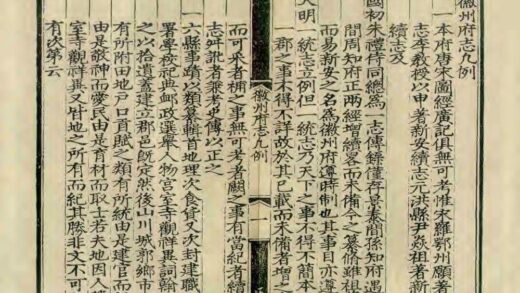 徽州府志凡例
一本府唐宋圖經廣記俱無可考惟宋羅鄂州願著
志李教授以申著新安續志元洪縣尹焱祖著新
續志及
國初朱禮侍同總爲一志傳錄僅存景泰間孫知府遇
間周知府正兩經增續畧而未備今之纂脩雖祖
而易新安之名爲徽州府遵時制也其事目亦遵
大明一統志立例但一統志乃天下之事不得不簡本
郡之事不得不詳故於其已載而未備者增之
徽州府志凡例 一
而可采者補之事無可考者闕之事有當紀者續
志舛訛者兼考史傳以正之
一六縣事蹟以類纂輯首地理次食貨又次封建職
署學校祀典卹政選舉人物宮室寺觀祥異詞翰
之以拾遺蓋建立郡邑旣定然後山川城郭鄉市
有所附田地戶口貢賦之類有所統由是建官而
由是敬神而愛民由是育材而取士若夫地因人
室寺觀祥異又皆地之所有而紀其勝非文不可
有次第云